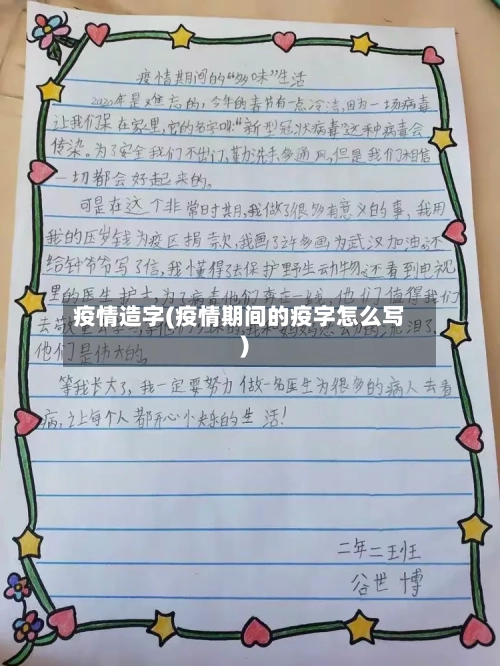 疫情期间的“多味”生活
2020年是难忘的，今年的春节有一点冷清，因为一场病毒
让我们呆在家里，它的名字叫“新型冠状病毒”这种病毒会
传染。为了安全我们不出门，勤洗手多通风，但是我们相信
一切都会好起来的。
可是在这个非常时期，我做了很多有意义的事，我用
我的压岁钱为疫区捐款，我画了许多画为武汉加油。还
给钟爷爷写了信，我懂得了去保护野生动物。还看到电视
里的医生护士，为了病毒他们奔走一线，他们值得我们
去
疫情造字(疫情期间的疫字怎么写
)
流泪了
他们是伟大的。
等我长大了，我一定要努力做一名医生为很多的病人去看
病，让每个人都开心快乐的生活！
二年二班
谷世博